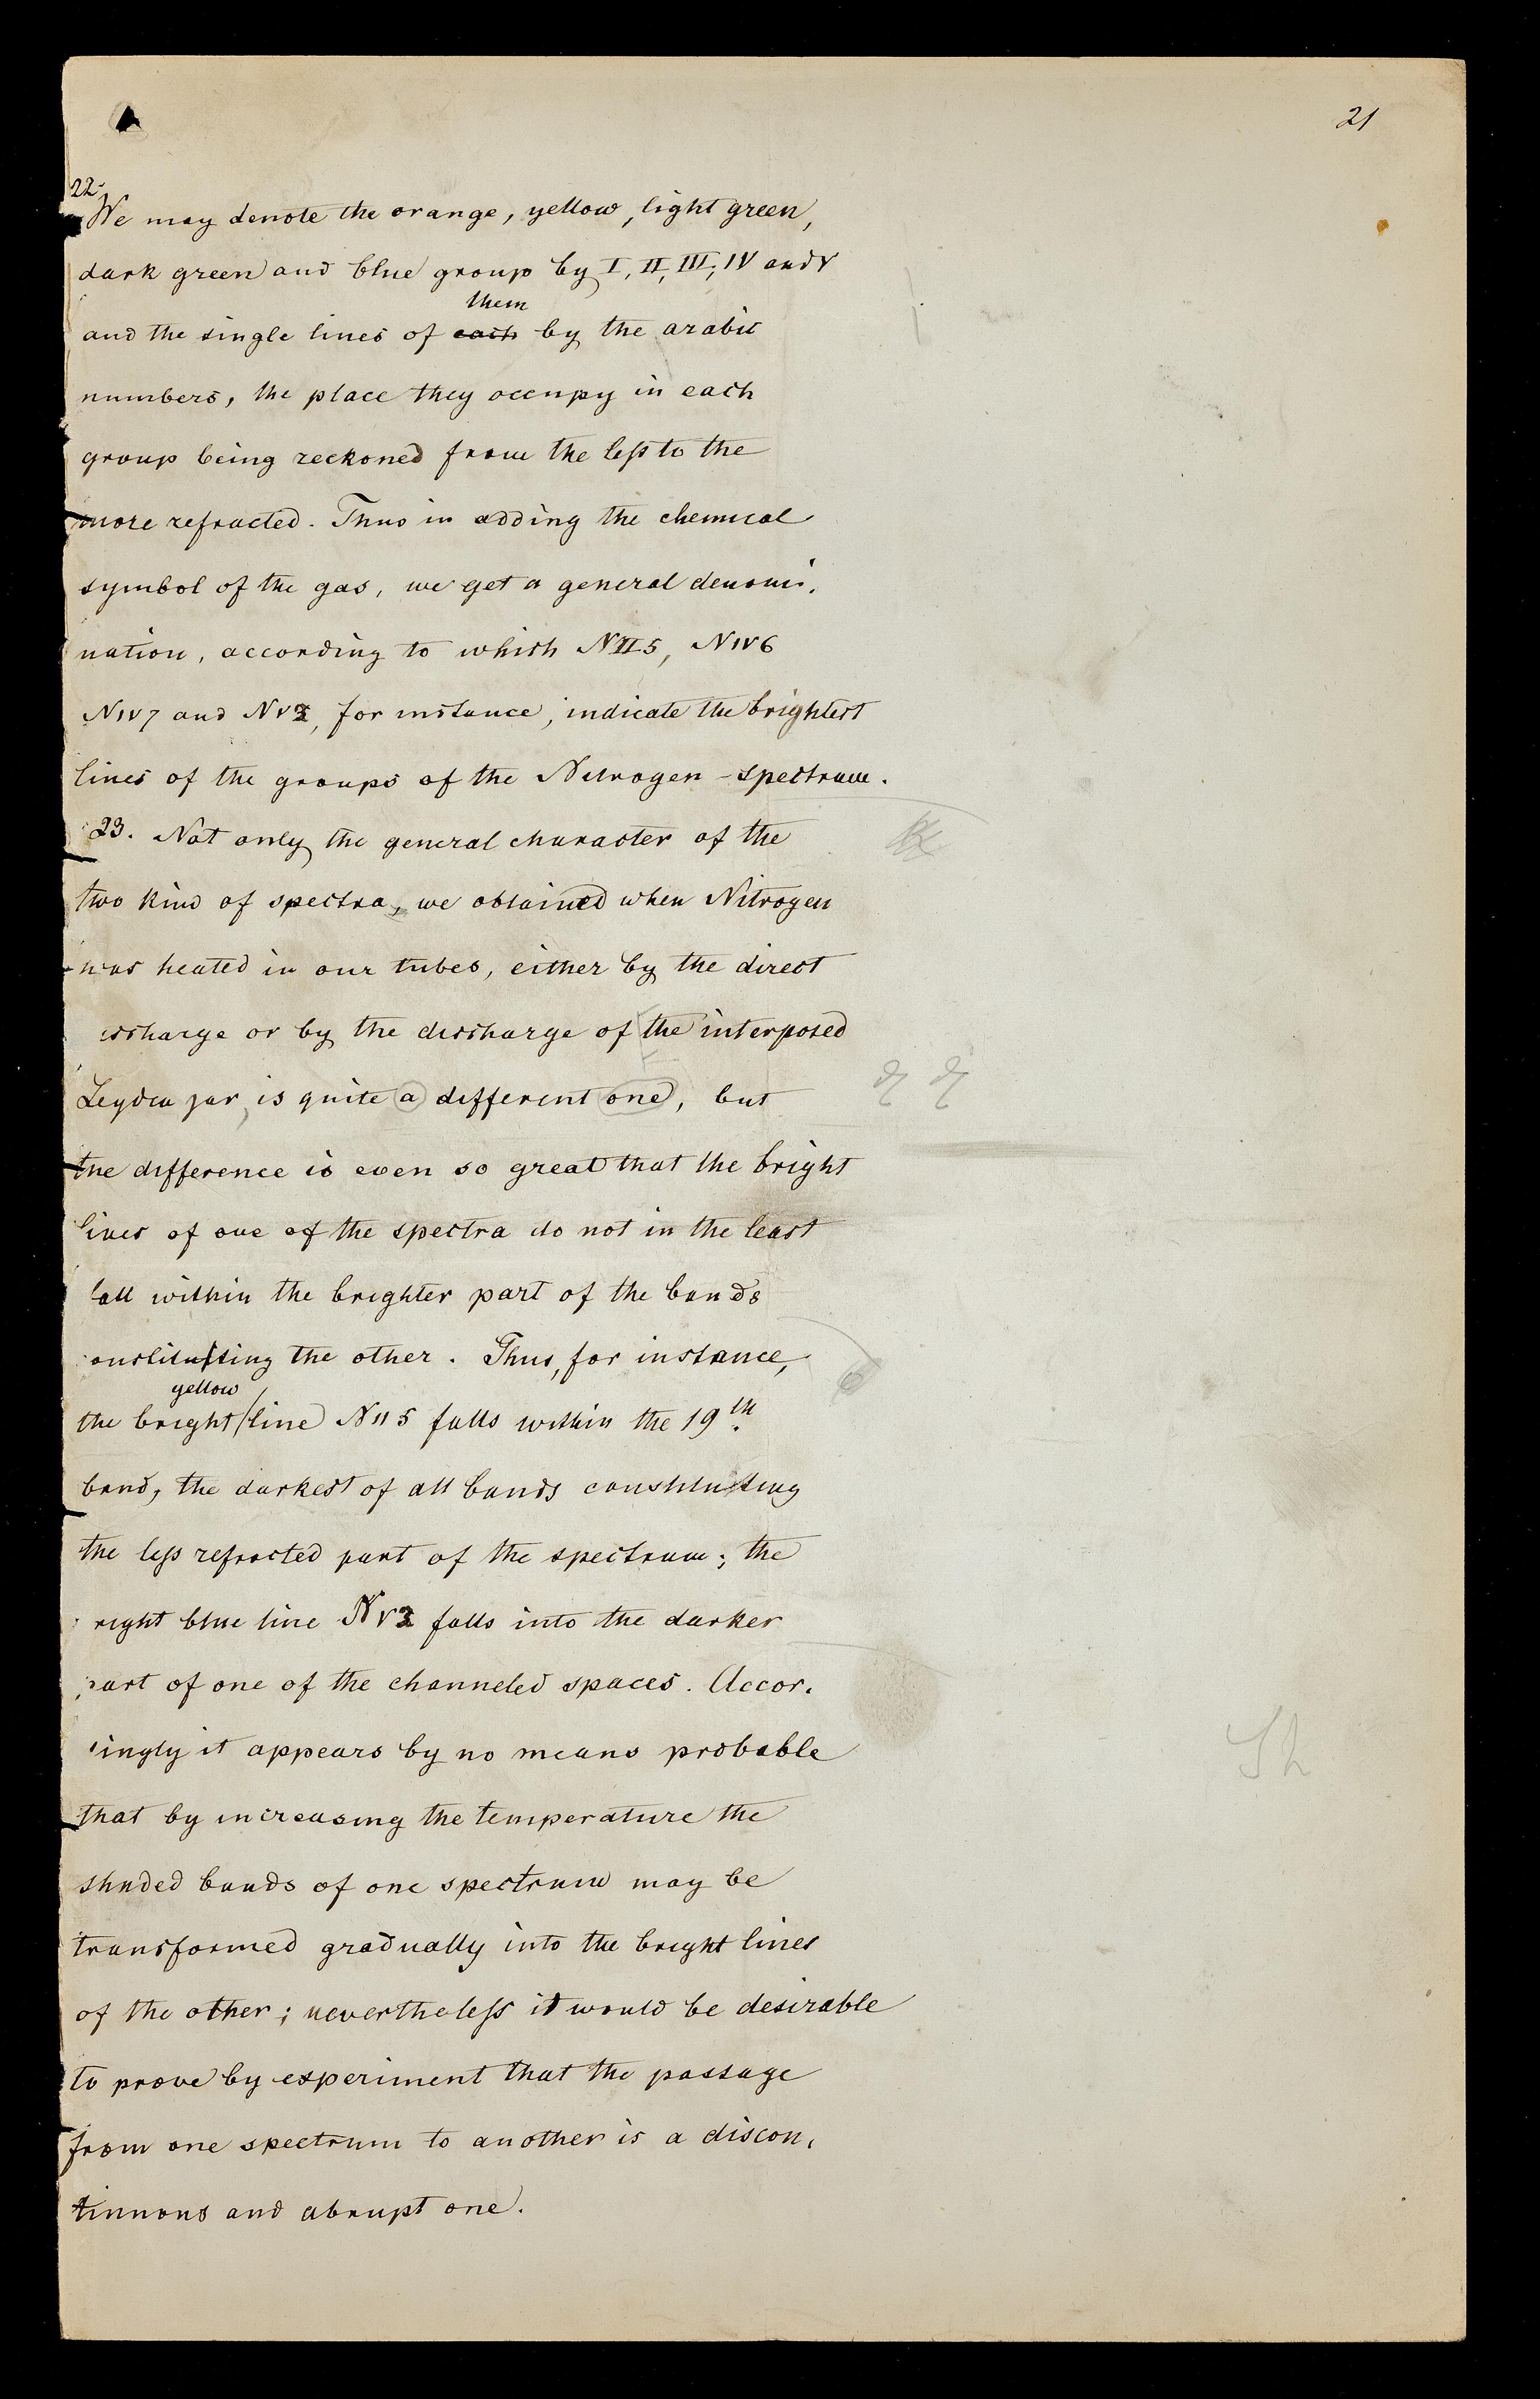 21
22.
We may denote the orange, yellow, light green,
dark green and blue group by I, II, III, IV and V
them
and the single lines of each by the arabic
numbers, the place they occupy in each
group being reckoned from the less to the
more refracted. Thus in adding the chemical
symbol of the gas, we get a general denomi-
nation, according to which NII5, NIV6
NIV7 and NV2, for instance, indicate the brightest
lines of the groups of the Nitrogen-spectrum.
23. Not only the general character of the
two kind of spectra, we obtained when Nitrogen
was heated in our tubes, either by the direct
ischarge or by the discharge of the interposed
Leyden jar, is quite a different one, but
the difference is even so great that the bright
lines of one of the spectra do not in the least
fall within the brighter part of the bands
onstituting the other. Thus, for instance,
yellow
the bright line NII5 falls within the 19th.
band, the darkest of all bands constituting
the less refracted part of the spectrum; the
right blue line NV2 falls into the darker
part of one of the channeled spaces. Accor-
ingly it appears by no means probable
that by increasing the temperature the
shaded bands of one spectrum may be
transformed gradually into the bright lines
of the other; nevertheless it would be desirable
to prove by experiment that the passage
from one spectrum to another is a discon-
tinnous and abrupt one.